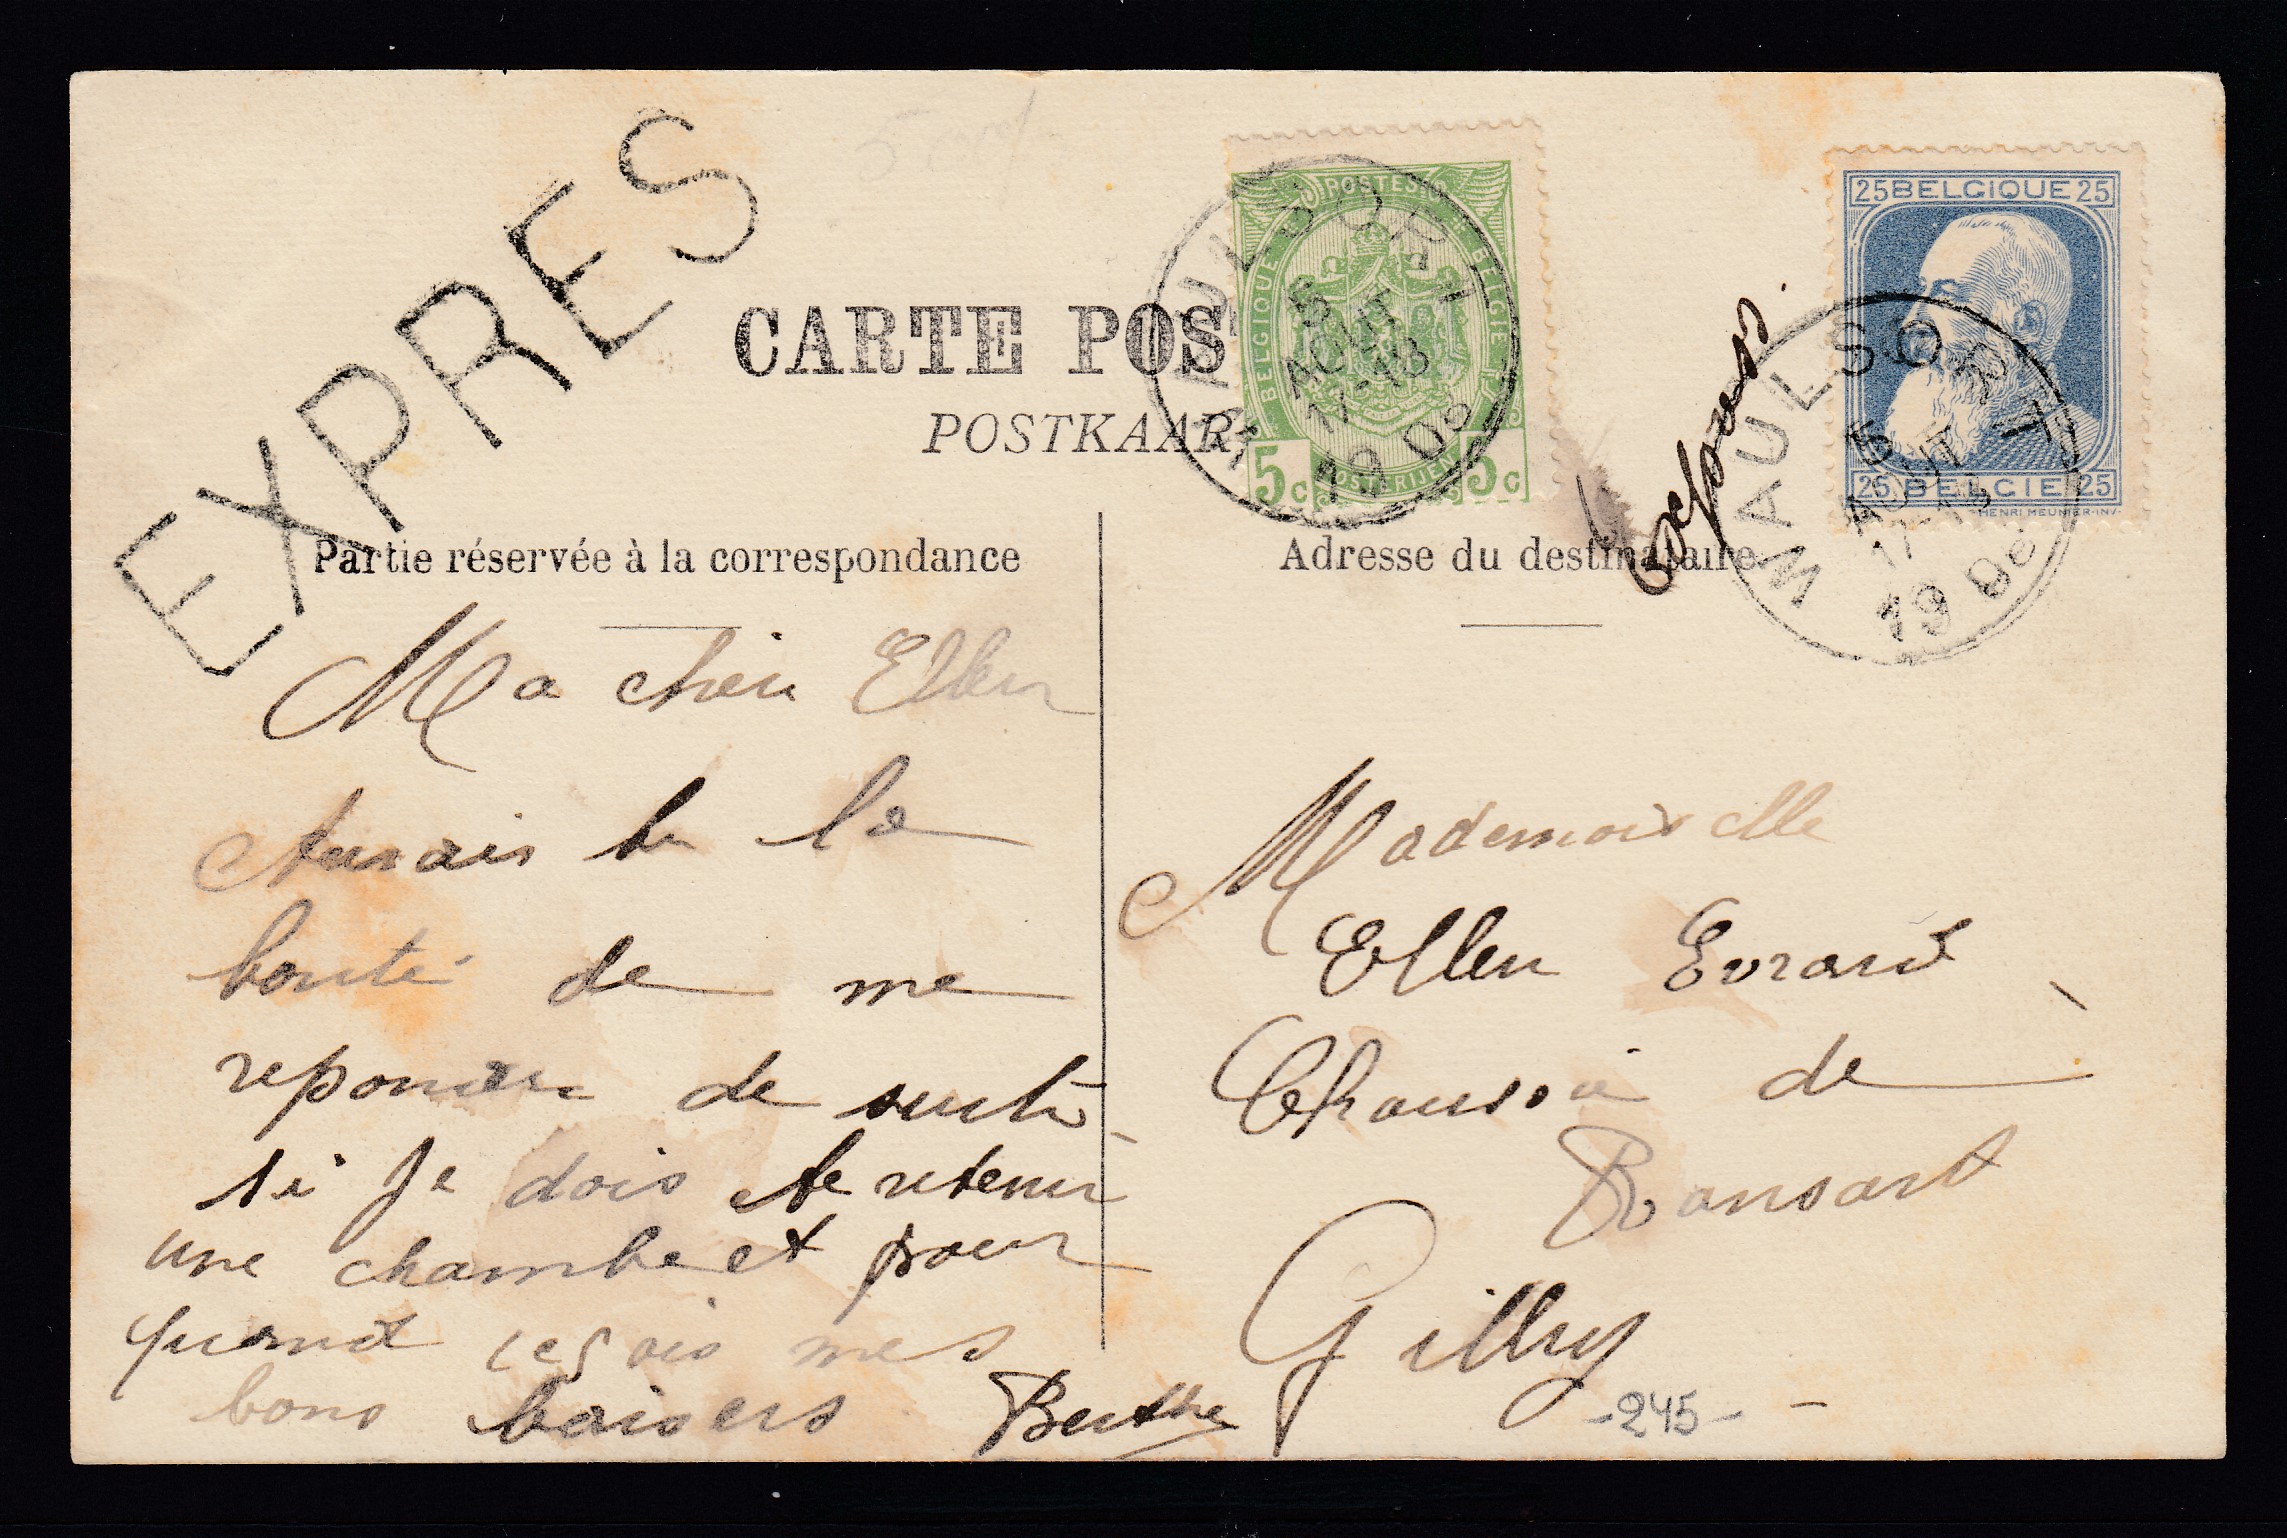 EXPRES
CARTE POS
POSTKAAR
POSTES
BELGIQUE
BELGIE
POSTERIJEN
5c 5c
WAULSORT
5
AOUT
17-18
19 09
25 BELGIQUE 25
25 BELGIE 25
HENRI MEUNIER-INV.
WAULSORT
5
AOUT
17-18
19 09
Expres.
Partie réservée à la correspondance
Adresse du destinataire
Ma chère Ellen
Aurais tu la
bonté de me
repondre de suite
si je dois te retenir
une chambe et pour
quand reçois mes
bons baisers Berthe
Mademoiselle
Ellen Evrard
Chaussée de
Ransart
Gilly
-245-